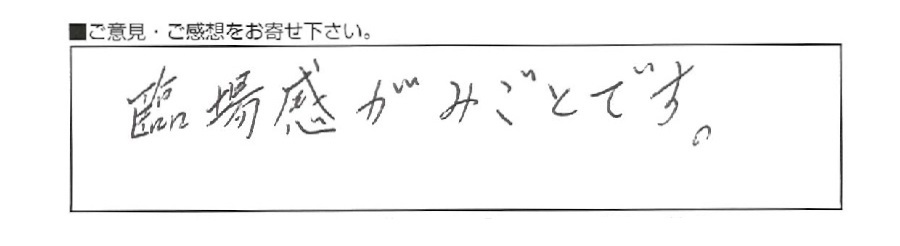 ■ご意見・ご感想をお寄せ下さい。
臨場感がみごとです。